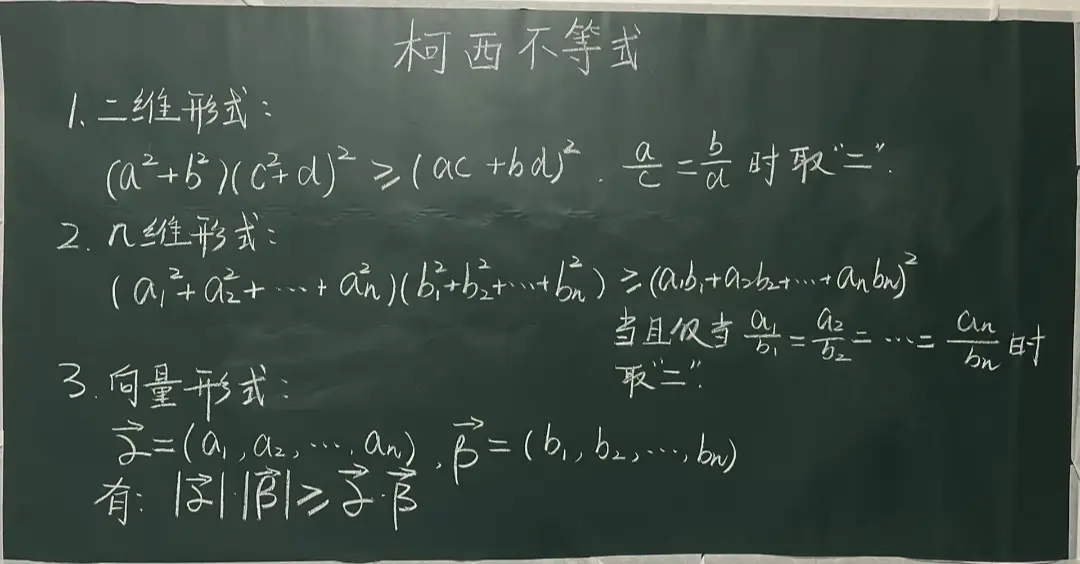 柯西不等式
1. 二维形式:
(a²+b²)(c²+d)² ≥ (ac+bd)². a/c = b/d 时取"=".
2. n维形式:
(a₁²+a₂²+⋯+aₙ²)(b₁²+b₂²+⋯+bₙ²) ≥ (a₁b₁+a₂b₂+⋯+aₙbₙ)²
当且仅当 a₁/b₁ = a₂/b₂ = ⋯ = aₙ/bₙ 时
取"=".
3. 向量形式:
α⃗=(a₁,a₂,⋯,aₙ), β⃗=(b₁,b₂,⋯,bₙ)
有: |α⃗|·|β⃗| ≥ α⃗·β⃗